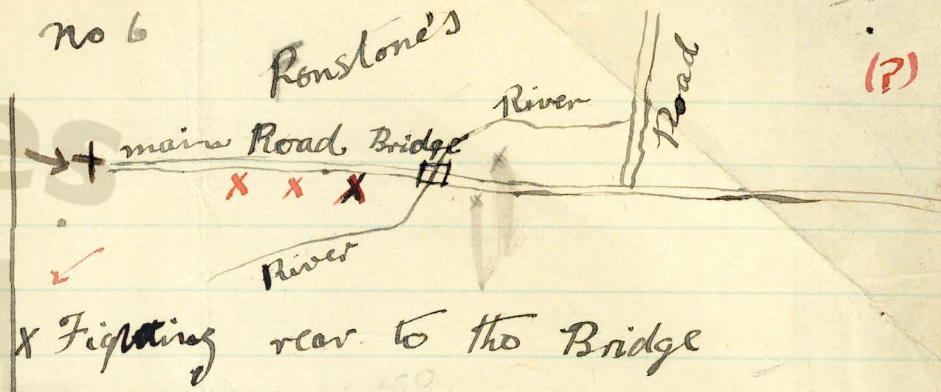 no 6
Ronstone's
River
Road
(?)
main Road Bridge
River
x Fighting rear to tho Bridge